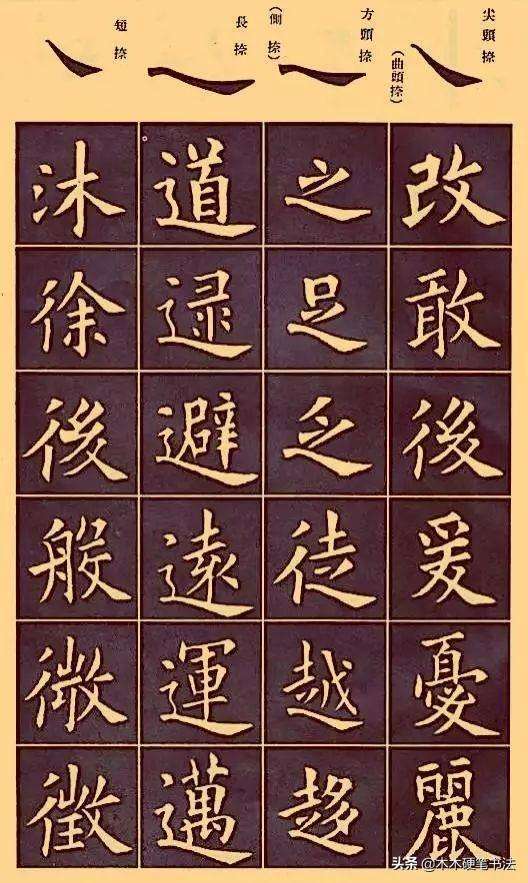 尖頭捺
(曲頭捺)
方頭捺
(側捺)
長捺
短捺
改敢後爰憂麗
之足乏徒越趍
道逯避遠運邁
沐徐後般微徵
头条 @木木硬笔书法